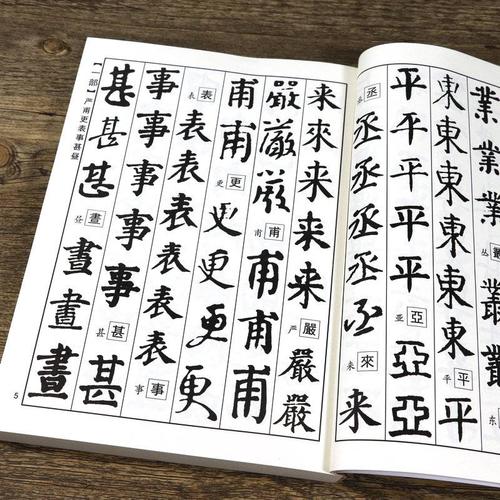 業業業
丛 叢
叢叢
东
東東東東東
平 平
平
平平平平
亚 亞
亞亞
丞 丞
丞丞丞丞丞
来 來
来
来來来来来
严 嚴
嚴嚴
嚴嚴嚴
甫 甫
甫甫甫
甫甫
更 更
更更更更
表 表
表表表表表表
事 事
事事事事事
甚 甚
甚
甚甚甚
昼 晝
晝晝晝
【一部】严甫更表事甚昼
5